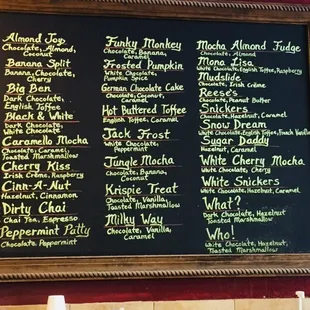 Almond Joy
Chocolate, Almond,
Coconut
Banana Split
Banana, Chocolate,
Cherry
Big Ben
Dark Chocolate,
English Toffee
Black & White
Dark Chocolate,
White Chocolate
Caramello Mocha
Chocolate, Caramel,
Toasted Marshmallow
Cherry Kiss
Irish Crème, Raspberry
Cinn-A-Nut
Hazelnut, Cinnamon
Dirty Chai
Chai Tea, Espresso
Peppermint Patty
Chocolate Peppermint
Funky Monkey
Chocolate, Banana,
Caramel
Frosted Pumpkin
White Chocolate,
Pumpkin Spice
German Chocolate Cake
Chocolate, Coconut,
Caramel
Hot Buttered Toffee
English Toffee, Caramel
Jack Frost
White Chocolate,
Peppermint
Jungle Mocha
Chocolate, Banana,
Coconut
Krispie Treat
Chocolate, Vanilla,
Toasted Marshmallow
Milky Way
Chocolate, Vanilla,
Caramel
Mocha Almond Fudge
Chocolate, Almond
Mona Lisa
White Chocolate, English Toffee, Raspberry
Mudslide
Chocolate, Irish Crème
Reese's
Chocolate, Peanut Butter
Snickers
Chocolate, Hazelnut, Caramel
Snow Dream
White Chocolate, English Toffee, French Vanilla
Sugar Daddy
Hazelnut, Caramel
White Cherry Mocha
White Chocolate, Cherry
White Snickers
White Chocolate, Hazelnut, Caramel
What?
Dark Chocolate, Hazelnut
Toasted Marshmallow
Who!
White Chocolate, Hazelnut,
Toasted Marshmallow